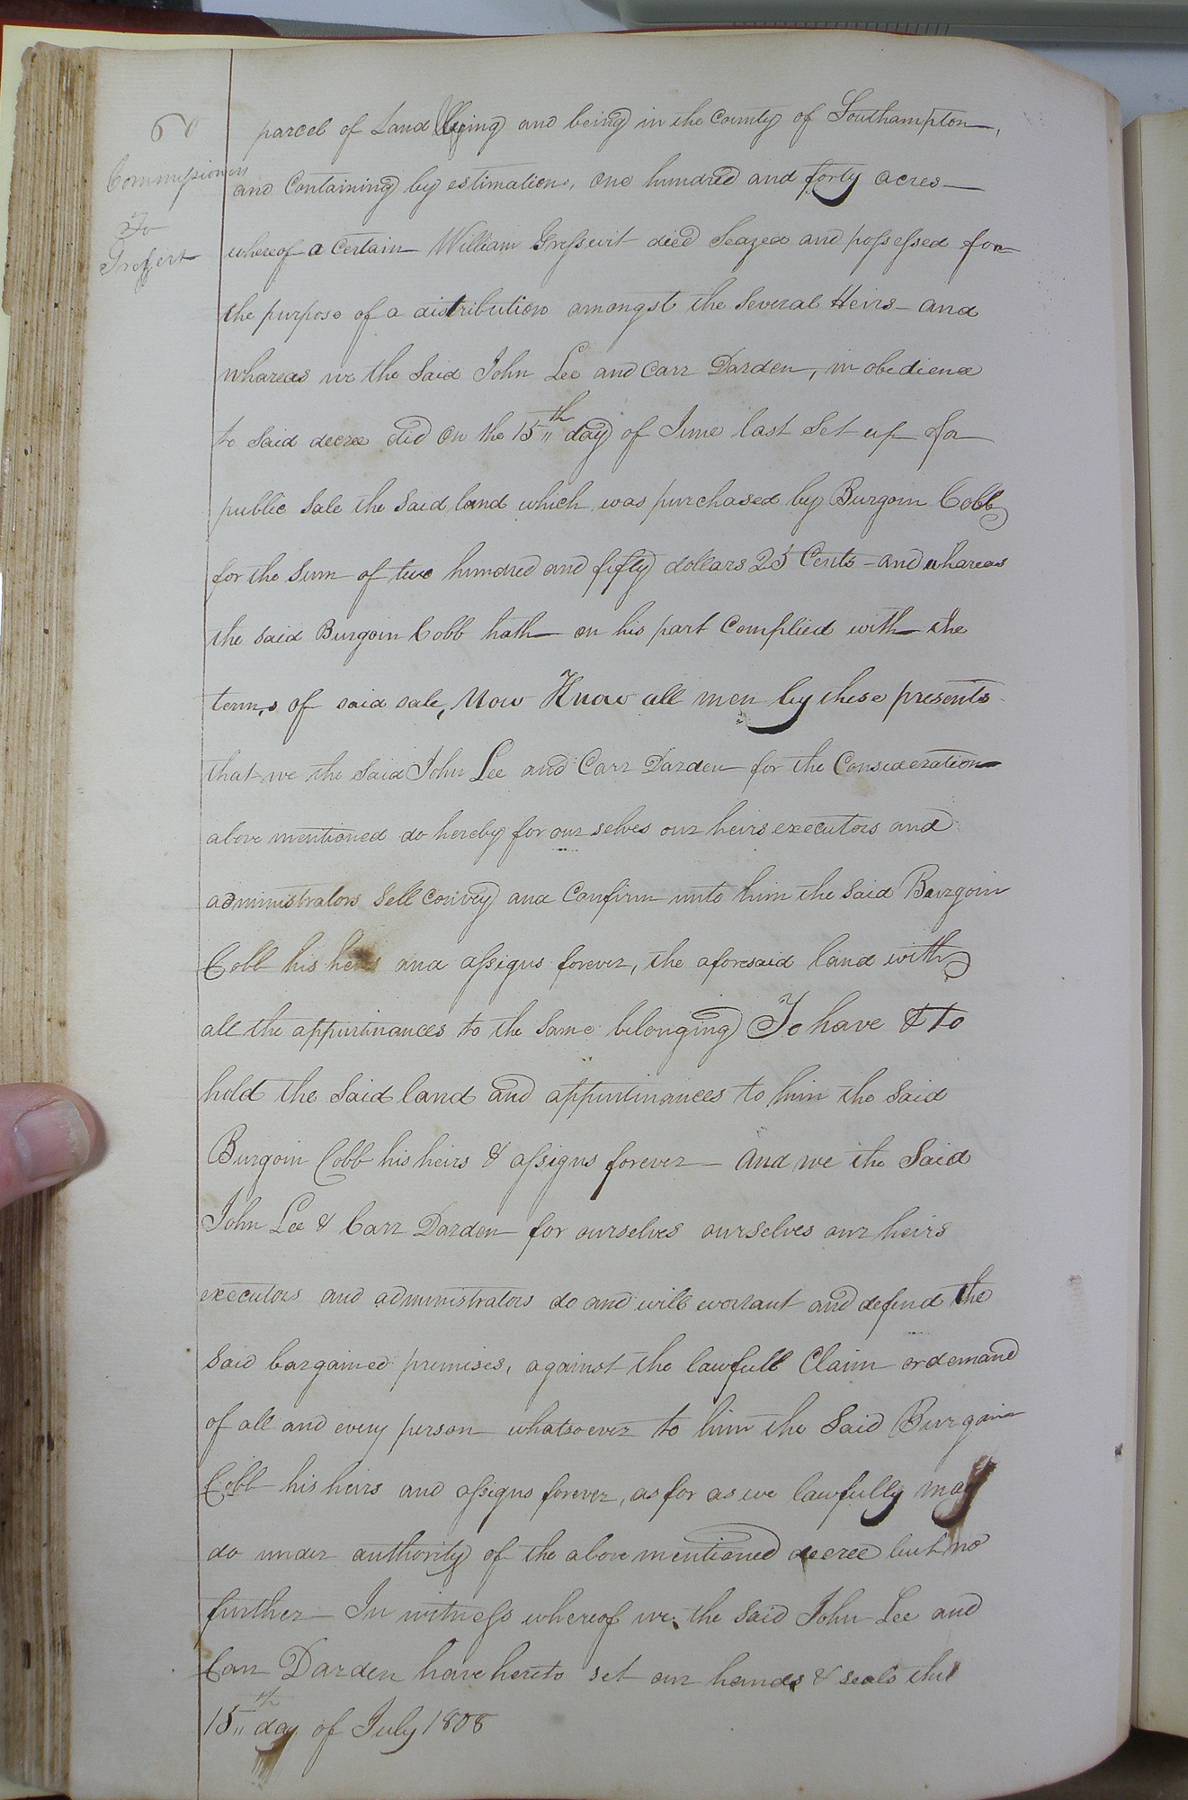 60
Commissioners
To
parcel of Land lying and being in the County of Southampton,
and Containing by estimation, One hundred and forty acres
whereof a Certain William Gresswit died Seazed and possessed for
the purpose of a distribution amongst the Several Heirs - and
whareas we the Said John Lee and Carr Darden, in obedience
to Said decree did on the 15th day of June last Set up for
public Sale the Said land which was purchased by Burgoin Cobb
for the Sum of two hundred and fifty dollars 25 Cents - and whareas
the said Burgoin Cobb hath on his part Complied with the
terms of said sale, Now Know all men by these presents
that we the Said John Lee and Carr Darden for the Consideration
above mentioned do hereby for our selves our heirs executors and
administrators Sell Convey and Confirm unto him the Said Burgoin
Cobb his heirs and assigns forever, the aforesaid land with
all the appurtinances to the Same belonging To have & to
hold the Said land and appurtinances to him the Said
Burgoin Cobb his heirs & assigns forever - And we the Said
John Lee & Carr Darden for ourselves ourselves our heirs
executors and administrators do and will warrant and defend the
Said bargained premises, against the lawfull Claim or demand
of all and every person whatsoever to him the Said Burgoin
Cobb his heirs and assigns forever, as far as we lawfully may
do under authority of the above mentioned decree but no
further - In witness whereof we the Said John Lee and
Carr Darden have hereto set our hands & seals this
15th day of July 1808